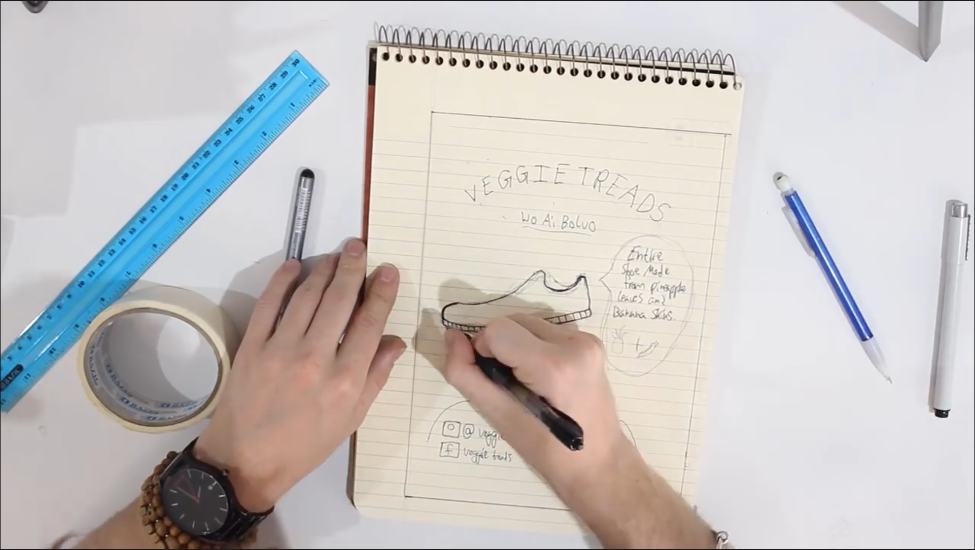 VEGGIE TREADS
Wo Ai Boluo
Entire
Shoe Made
from pineapple
leaves and
Banana Skins.
@ veggie
f veggie treads